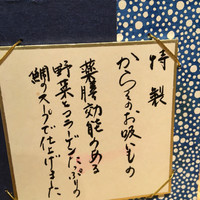 特製
からすみのお吸いもの
薬膳効能のある
野菜とコラーゲンたっぷりの
鯛のスープで仕上げました